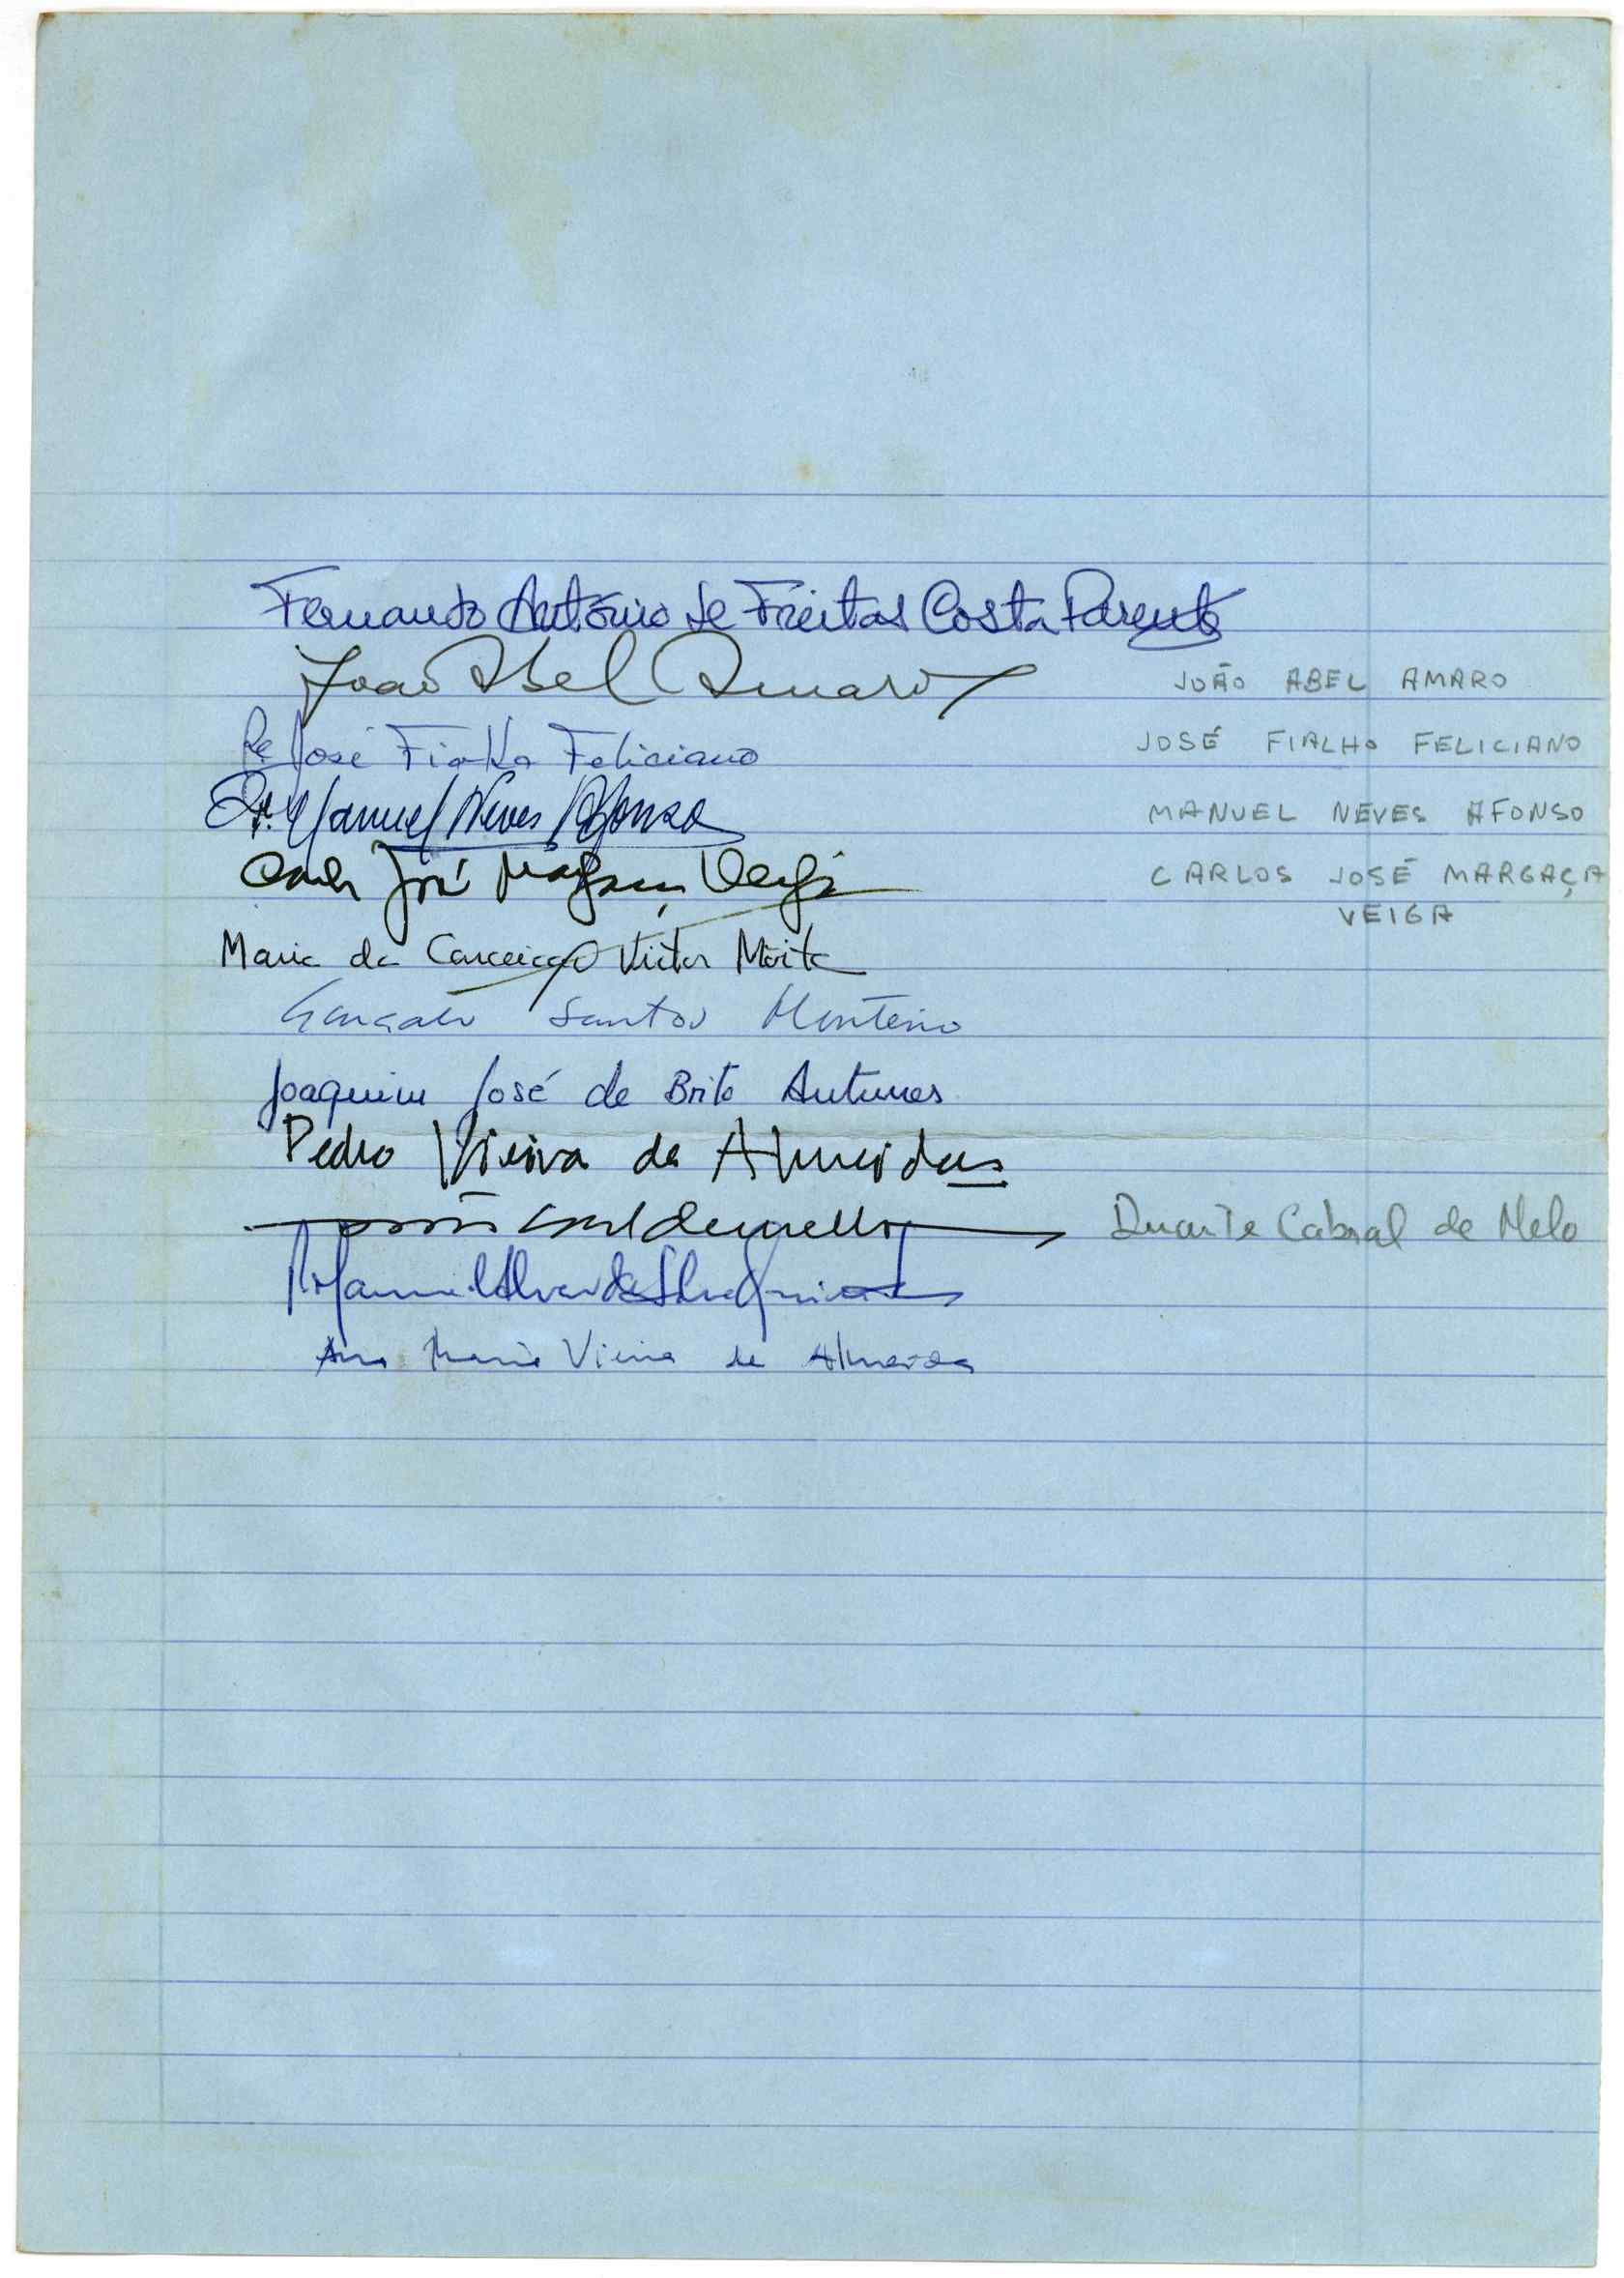 Fernando António de Freitas Costa Parente
João Abel Amaro JOÃO ABEL AMARO
Pe José Fialho Feliciano JOSÉ FIALHO FELICIANO
Dr. Manuel Neves Afonso MANUEL NEVES AFONSO
Carlos José Margaça Veiga CARLOS JOSÉ MARGAÇA
VEIGA
Maria da Conceição Victor Moita
Gonçalo Santos Monteiro
Joaquim José de Brito Antunes
Pedro Vieira de Almeida
Duarte Cabral de Mello Duarte Cabral de Melo
Manuel Alves da Silva
Ana Maria Vieira de Almeida